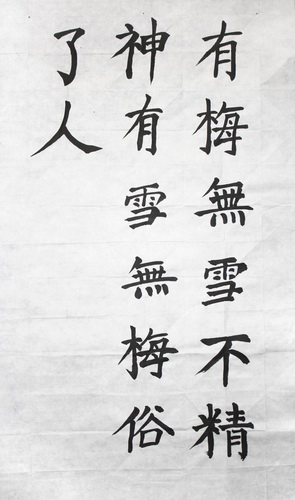 有梅無雪不精
神有雪無梅俗
了人